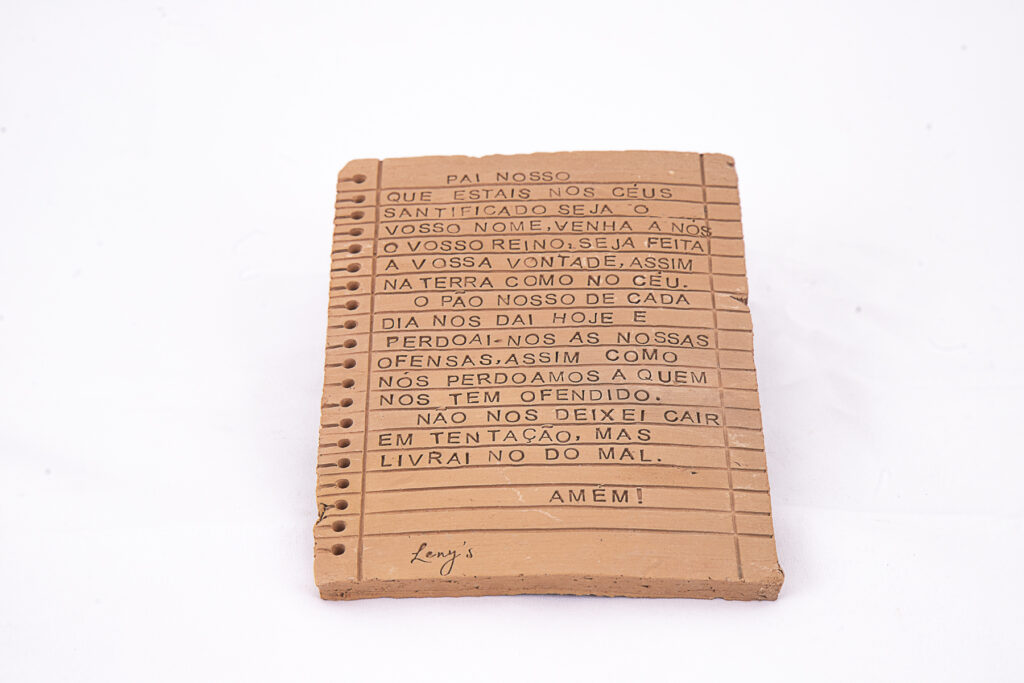 PAI NOSSO
QUE ESTAIS NOS CÉUS
SANTIFICADO SEJA O
VOSSO NOME, VENHA A NÓS
O VOSSO REINO, SEJA FEITA
A VOSSA VONTADE, ASSIM
NA TERRA COMO NO CÉU.
O PÃO NOSSO DE CADA
DIA NOS DAI HOJE E
PERDOAI-NOS AS NOSSAS
OFENSAS, ASSIM COMO
NÓS PERDOAMOS A QUEM
NOS TEM OFENDIDO.
NÃO NOS DEIXEI CAIR
EM TENTAÇÃO, MAS
LIVRAI NO DO MAL.
AMÉM!
Leny's